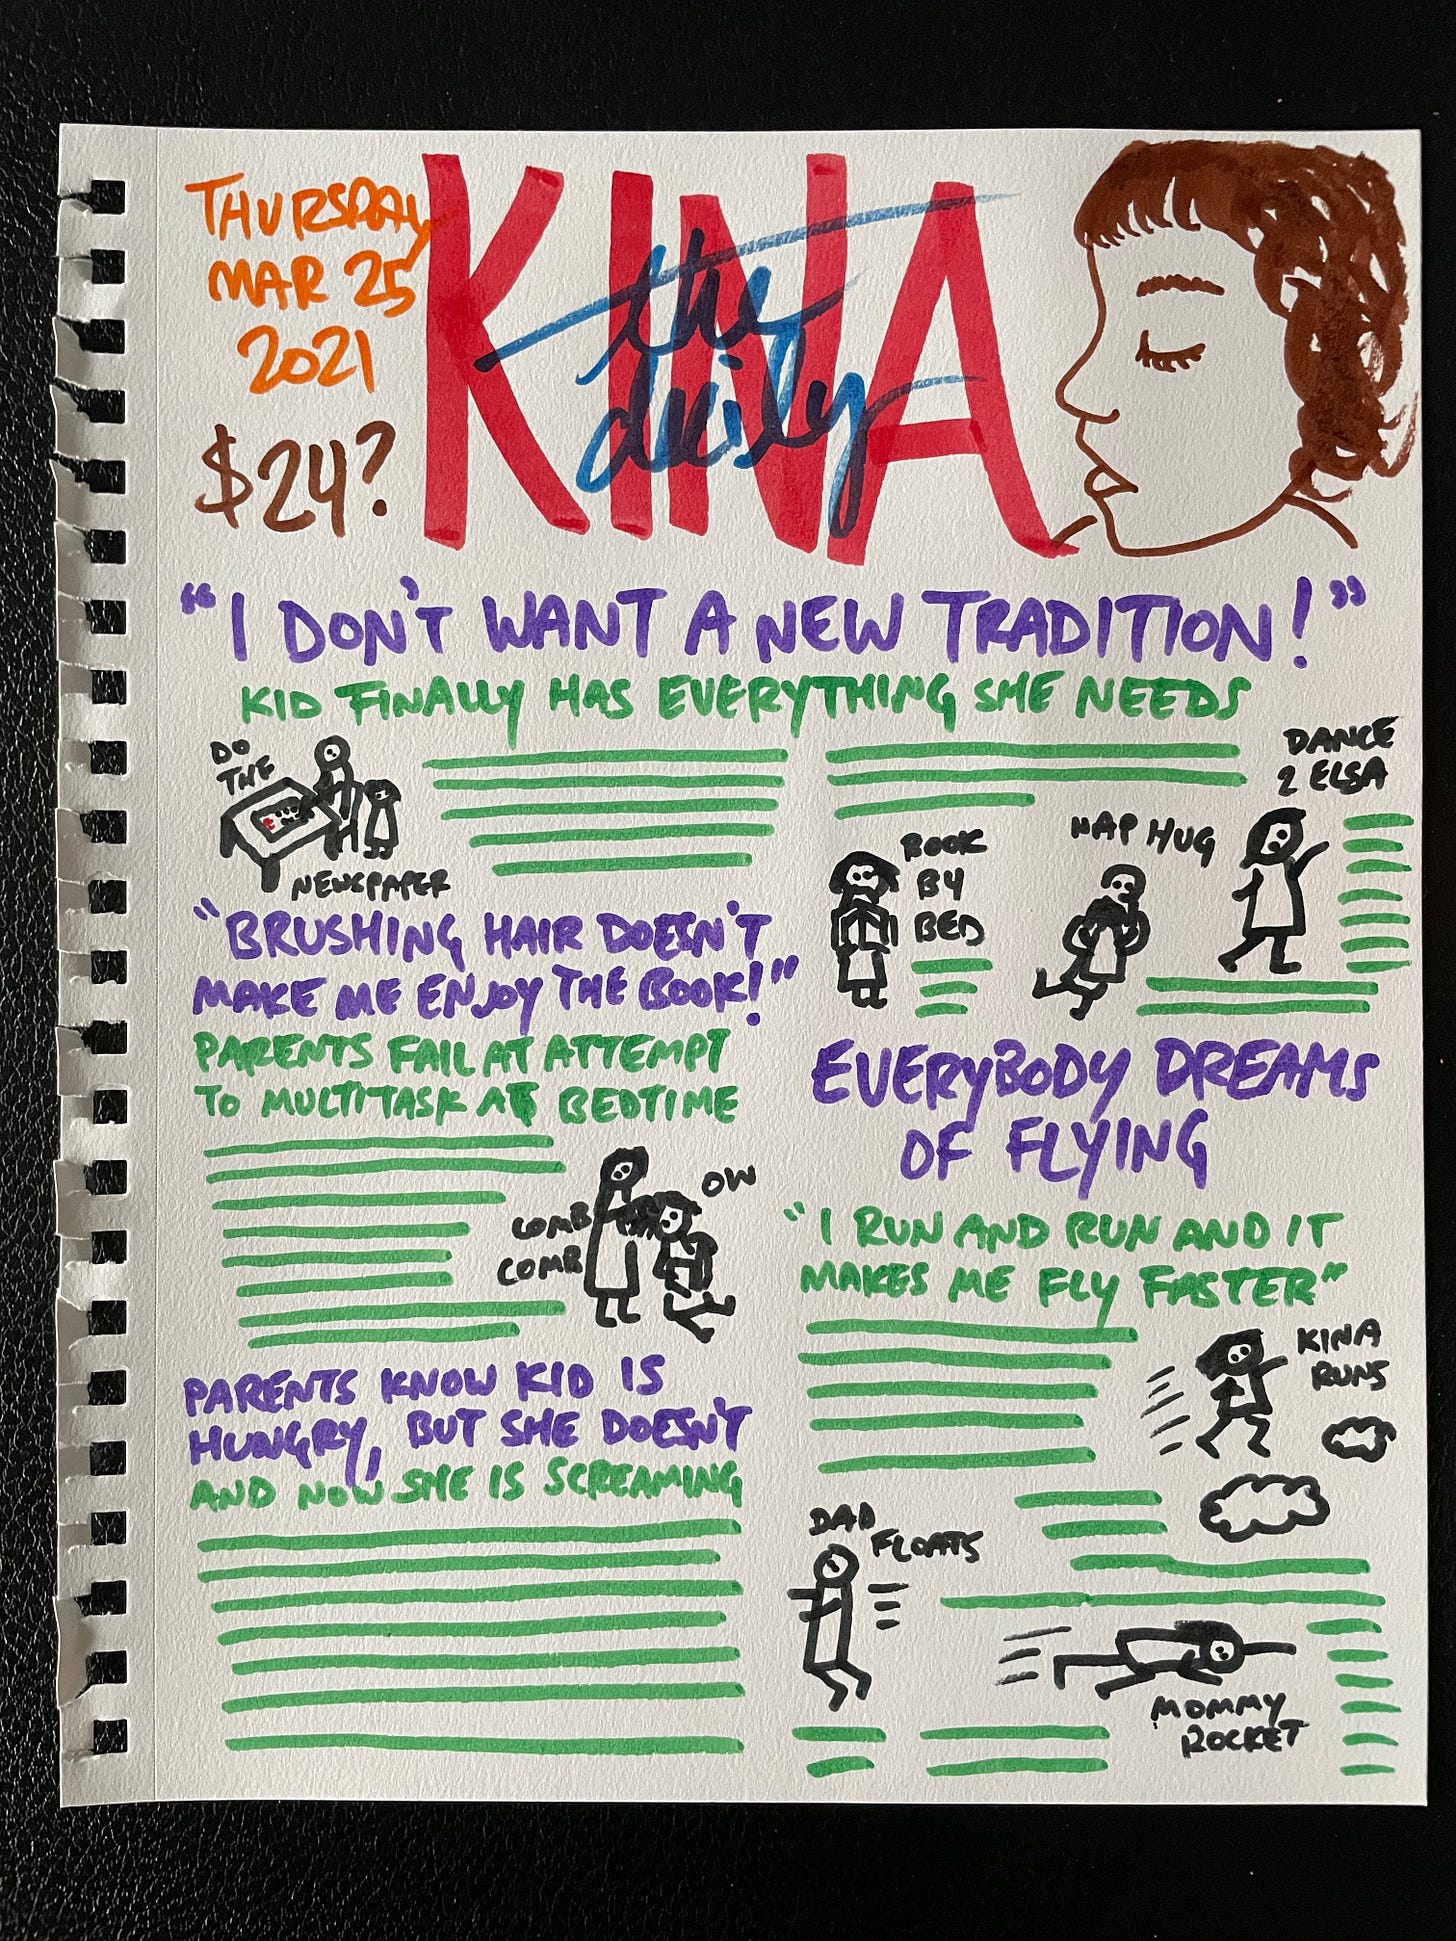 THURSDAY
MAR 25
2021
$24?
KINA
the daily
"I DON'T WANT A NEW TRADITION!"
KID FINALLY HAS EVERYTHING SHE NEEDS
DO
THE
NEWSPAPER
BOOK
BY
BED
NAP HUG
DANCE
2 ELSA
"BRUSHING HAIR DOESN'T
MAKE ME ENJOY THE BOOK!"
PARENTS FAIL AT ATTEMPT
TO MULTITASK AT BEDTIME
COMB
COMB
OW
PARENTS KNOW KID IS
HUNGRY, BUT SHE DOESN'T
AND NOW SHE IS SCREAMING
EVERYBODY DREAMS
OF FLYING
"I RUN AND RUN AND IT
MAKES ME FLY FASTER"
KINA
RUNS
DAD
FLOATS
MOMMY
ROCKET